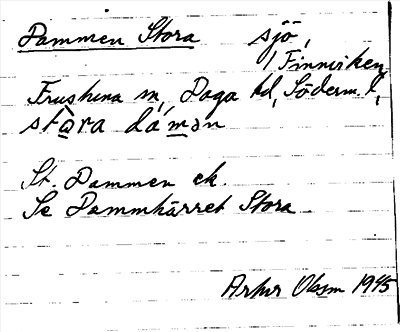 Dammen Stora sjö,
/ Finnviken
Frustuna sn, Daga hd, Söderm. l,
stọ̀ra dámən
St. Dammen ek.
Se Dammkärret Stora
Artur Olsm 1945